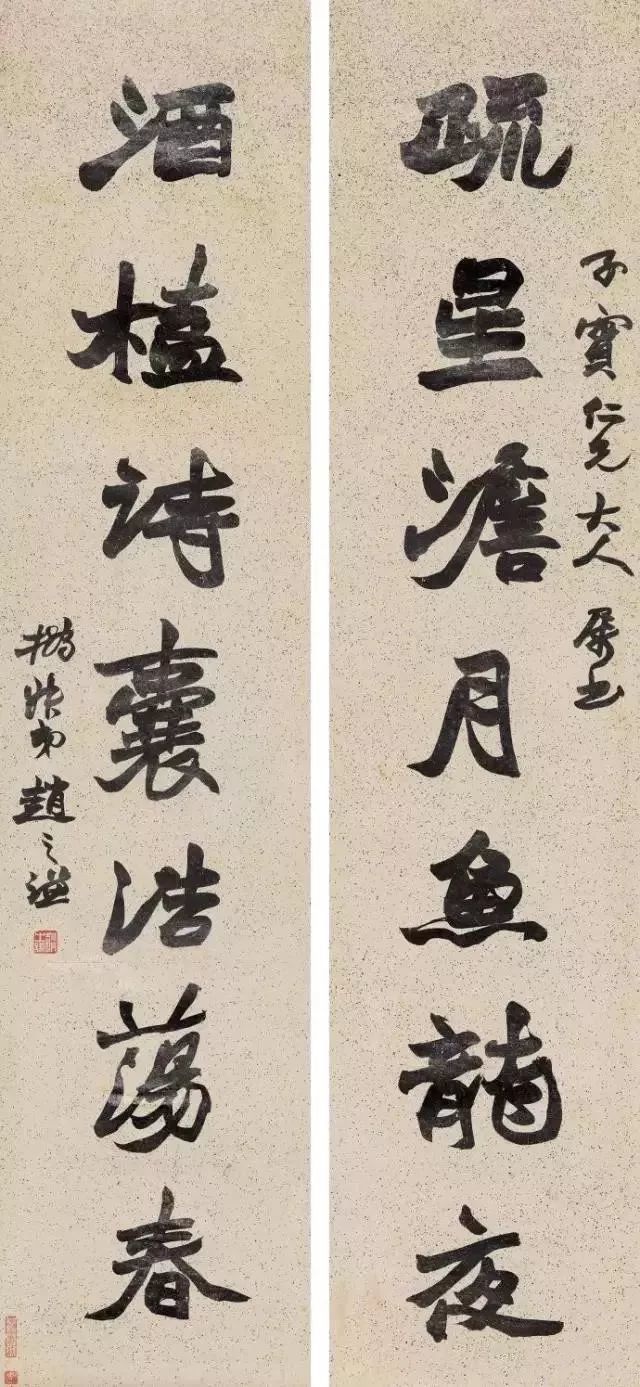 子寶仁兄大人屬書
疏星澹月魚龍夜
酒榼詩囊浩蕩春
撝叔弟趙之謙